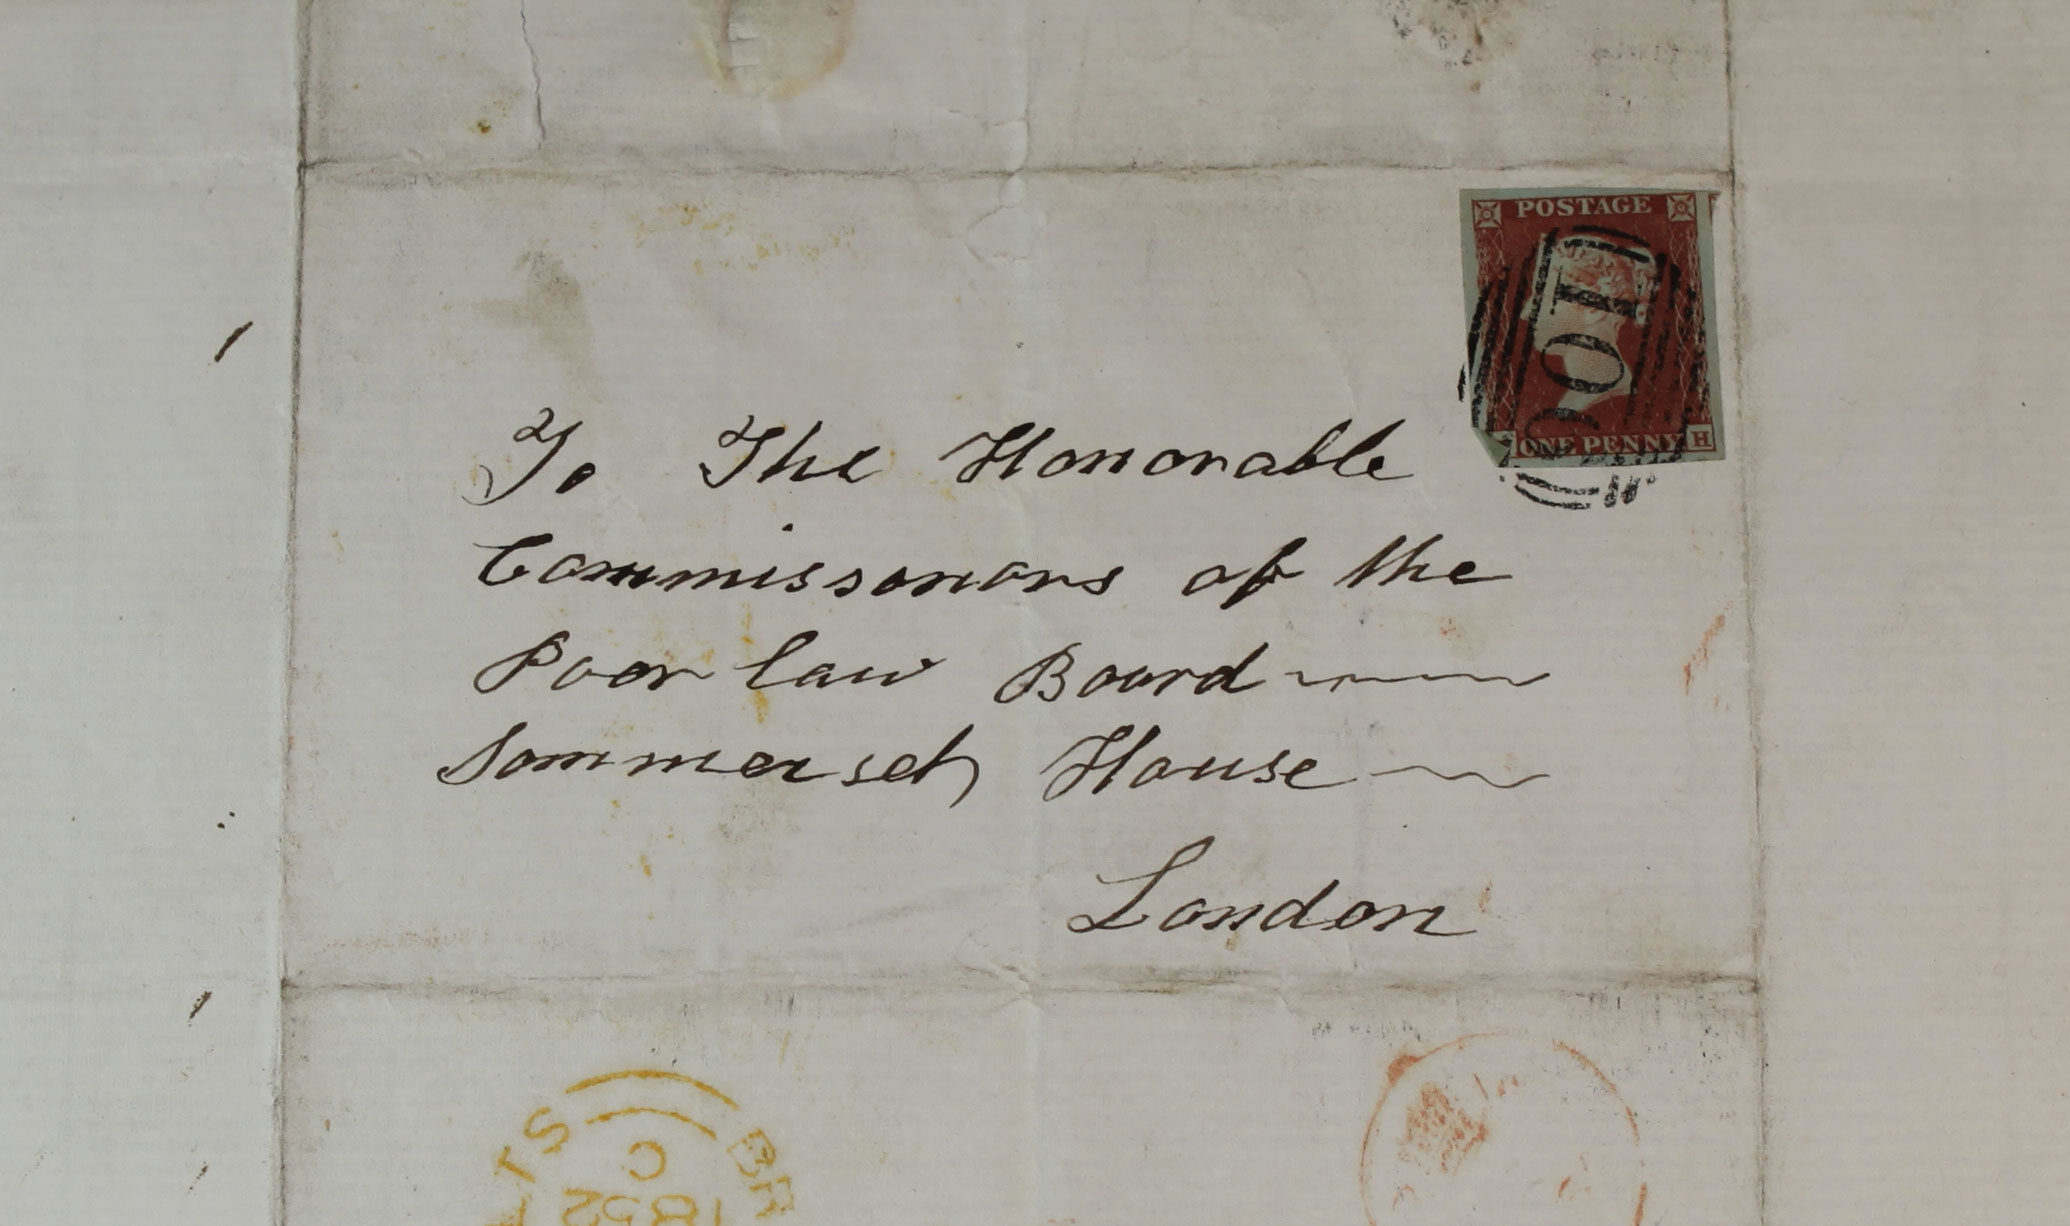 POSTAGE
ONE PENNY H
To The Honorable
Commissonors of the
Poor law Board
Sommerset House
London